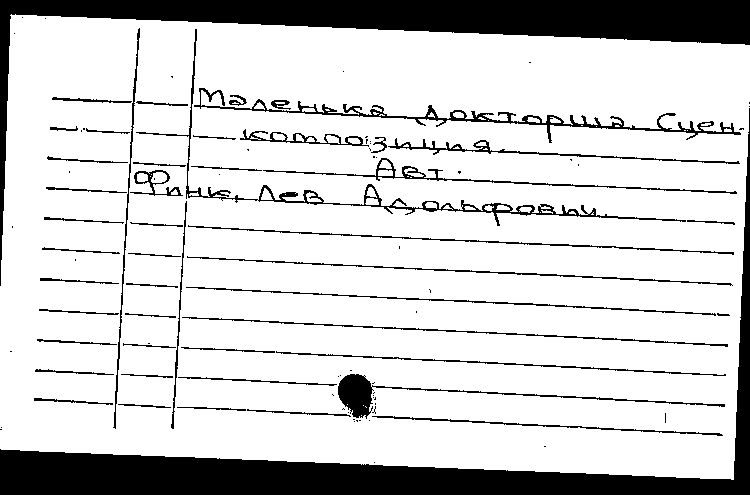 Маленька докторша. Сцен.
композиция.
Авт.
Финк, Лев Адольфович.